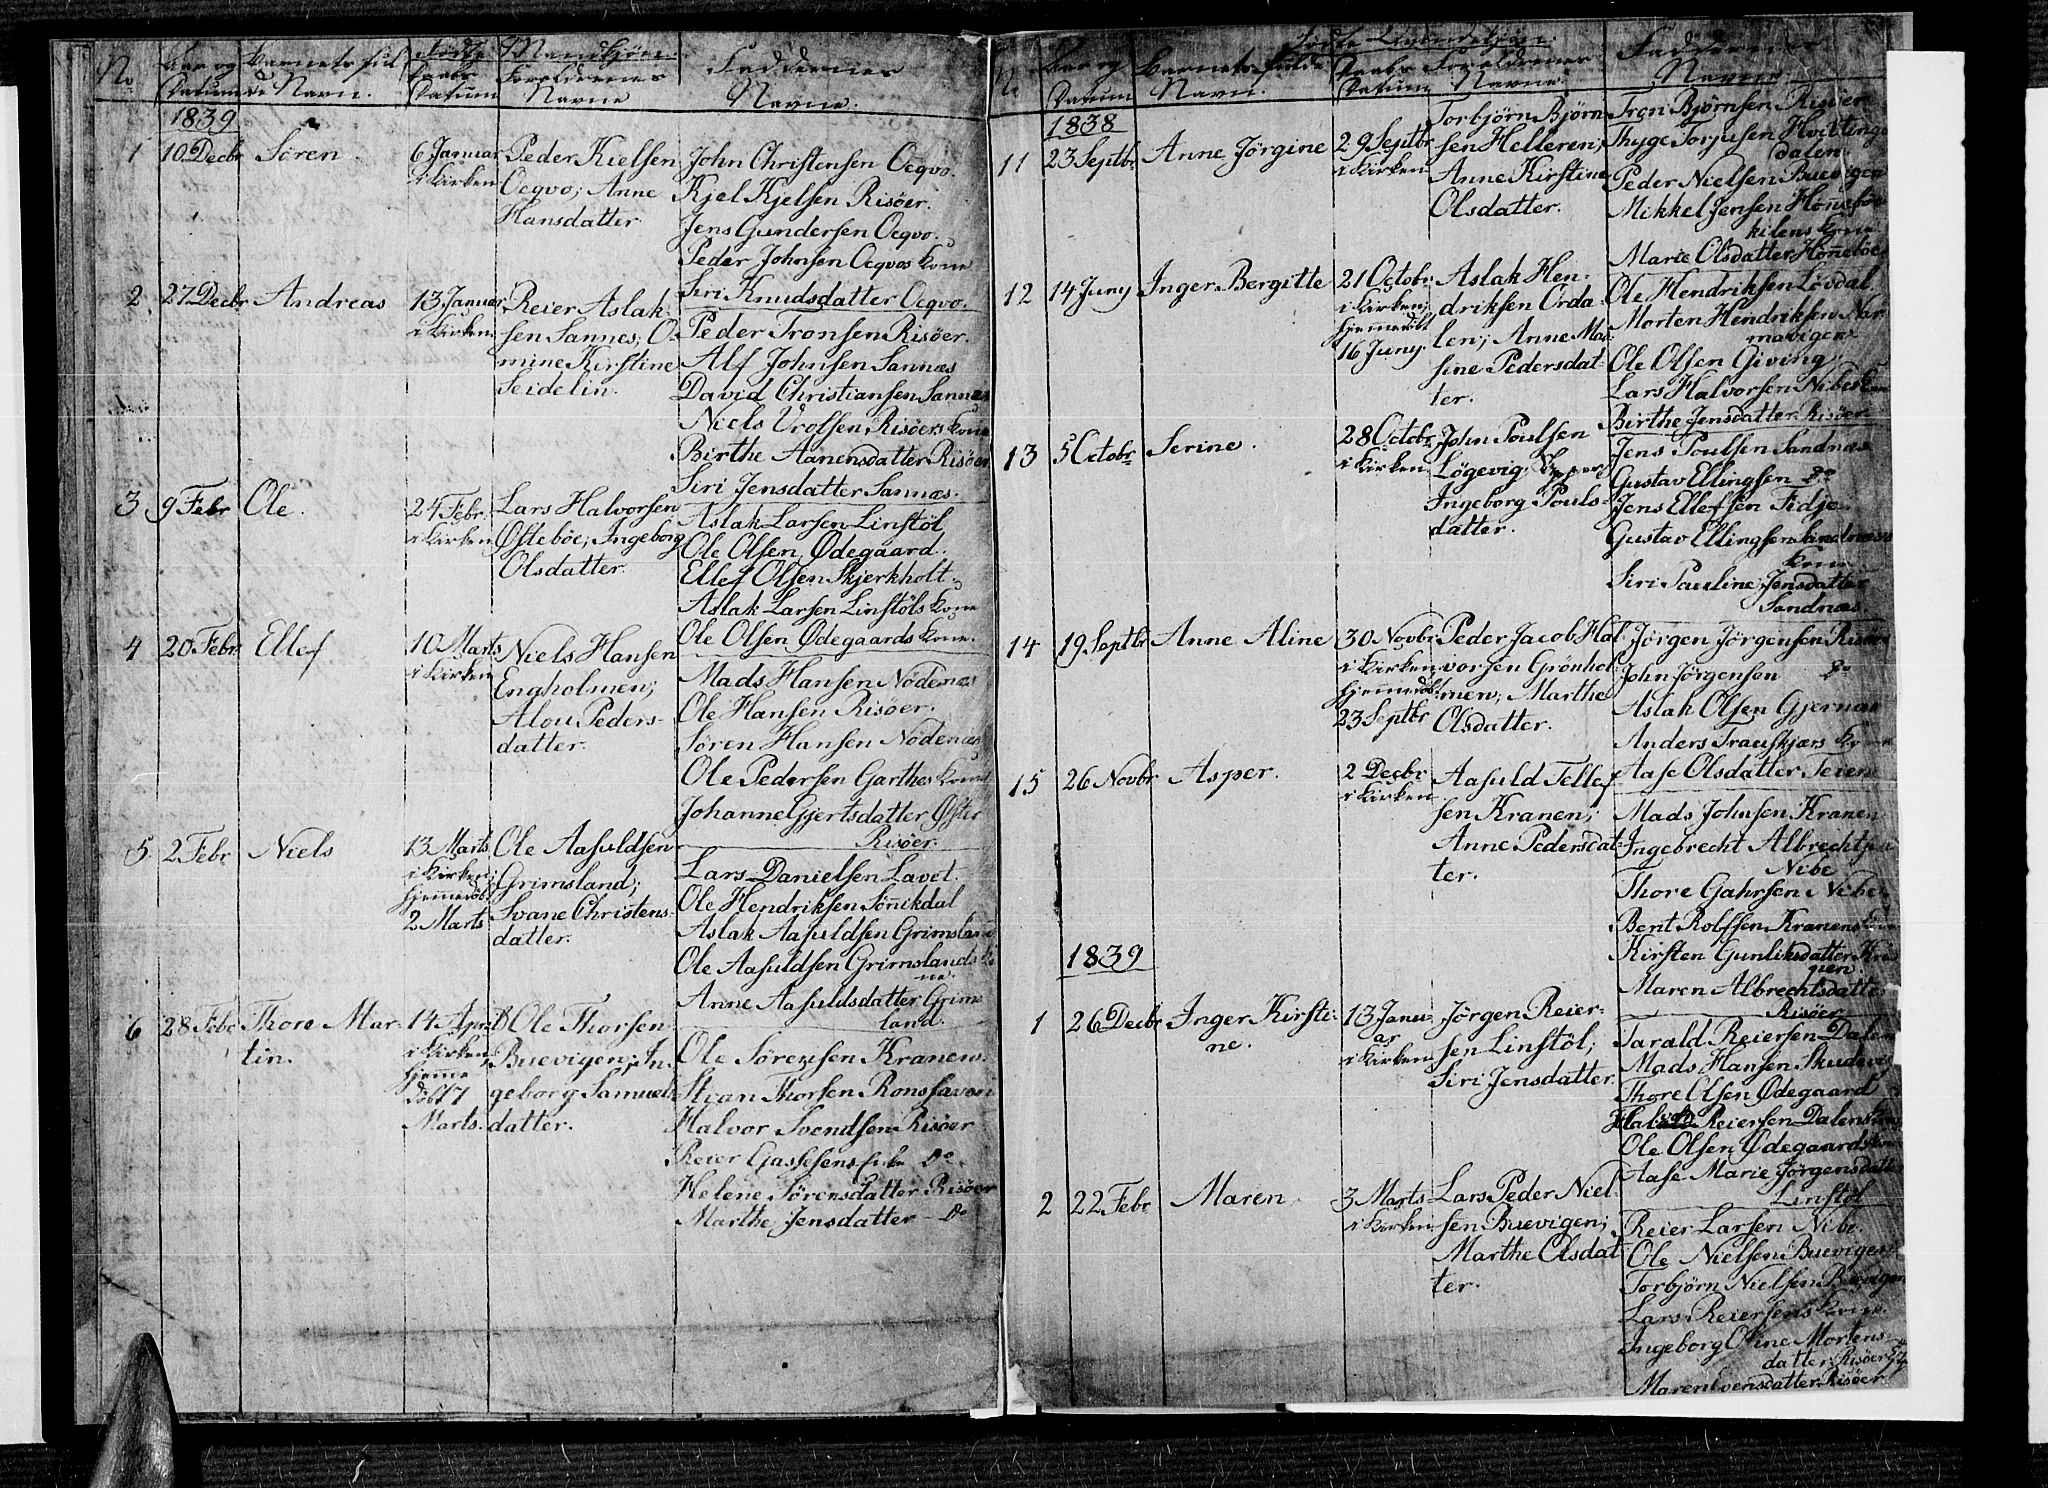 Fødte Mandkjøn.
No
Aar og Datum
Barnets fulde Navn.
Daabs Datum
Foreldrenes Navne
Faddernes Navne.
1839
1
10 Decbr
Sören.
6 Januar
i Kirken
Peder Kielsen
Ocqvo; Anne
Hansdatter
John Christensen Ocqvo.
Kjel Kjelsen Risöer.
Jens Gundersen Ocqvo.
Peder Johnsen Ocqvos Kone
Siri Knudsdatter Ocqvo.
2
27 Decbr
Andreas
13 Januar
i Kirken
Reier Aslak-
sen Sannes; O-
mine Kirstine
Seidelin.
Peder Tronsen Risöer.
Alf Johnsen Sannæs
David Christiansen Sannæs
Niels Vrolsen Risöers Kone
Birthe Aanensdatter Risöer
Siri Jensdatter Sannæs.
3
9 Febr
Ole.
24 Febr.
i Kirken
Lars Halvorsen
Østeböe; Ingeborg
Olsdatter.
Aslak Larsen Linstöl
Ole Olsen, Ødegaard.
Ellef Olsen Skjerkholt
Aslak Larsen Linstöls Kone
Ole Olsen Ødegaards Kone.
4
20 Febr.
Ellef
10 Marts
i Kirken
Niels Hansen
Engholmen;
Alou Peders-
datter.
Mads Hansen Nödenæs
Ole Hansen Risöer.
Sören Hansen Nödenæs
Ole Pedersen Garthes Kone
Johanne Gjertsdatter Øster
Risöer.
5
2 Febr
Niels
13 Marts
i Kirken;
hjemmedöbt
2 Marts
Ole Aasuldsen
Grimsland;
Svane Christens-
datter.
Lars Danielsen Lavet.
Ole Hendriksen Sönnikdal
Aslak Aasuldsen Grimsland
Ole Aasuldsen Grimslands Ko
ne.
Anne Aasuldsdatter Grims
land.
6
28 Febr
Thore Mar-
tin.
14 April
i Kirken,
hjemme
döbt 7
Marts.
Ole Thorsen
Buevigen; In-
geborg Samuels
datter.
Ole Sörensen Kranen.
Stian Thorsen Ronshaven
Halvor Svendsen Risöer
Reier Do.
Helene Sörensdatter Risöer
Marthe Jensdatter - Do
Fødte Qvindekjön.
No
Aar og Datum
Barnets fulde Navn.
Daabs Datum
Foreldrenes Navne
Faddernes Navne
1838
11
23 Septbr
Anne Jörgine
29 Septbr
i Kirken
Torbjörn Björn-
sen Helleren;
Anne Kirstine
Olsdatter.
Tron Björnsen Risöer
Thyge Torjusen Hvittings
dalen
Peder Nielsen Buevigen
Mikkel Jensen Hönneböe
kilens Kone
Marie Olsdatter Hönneböe
12
14 Juny
Inger Bergitte
21 Octobr
i Kirken;
hjemmedöbt
16 Juny.
Aslak Hen-
driksen Orda-
len; Anne Mad-
sine Pedersdat-
ter.
Ole Hendriksen Lövdal.
Morten Hendriksen Nar
mavigen
Ole Olsen Giving.
Lars Halvorsen Nibes Kone
Birthe Jensdatter Risöer
13
5 Octobr
Serine.
28 Octobr
i Kirken
John Poulsen
Lögevig,
Ingeborg Pouls-
datter.
Jens Poulsen Sandnæs
Gustav Ellingsen Do
Jens Ellefsen Fidje
Gustav Ellingsen Sandnæss
Kone
Siri Pauline Jensdatter
Sandnæs
14
19 Septbr
Anne Aline
30 Novbr
i Kirken
hjemmedöbt
23 Septbr
Peder Jacob Hal-
vorsen Grönhol-
men; Marthe
Olsdatter.
Jörgen Jörgensen Risöer
John Jörgensen Do
Aslak Olsen Gjernæs
Anders Trauskjærs Kone
Aase Olsdatter Teien
15
26 Novbr
Asper.
2 Decbr
i Kirken
Aasuld Tellef-
sen Kranen;
Anne Pedersdat-
ter.
Mads Johnsen Kranen
Ingebrecht Albrechtsen
Nibe
Thore Gahrsen Nibe
Bent Rolfsen Kranens Kone
Kirsten Gunliksdatter Kra
nen
Maren Albrechtsdatter
Risöer
1839
1
26 Decbr
Inger Kirsti-
ne.
13 Janu
ar
i Kirken
Jörgen Reier-
sen Linstöl;
Siri Jensdatter
Tarald Reiersen Dalen
Mads Hansen Skudevig
Thore Olsen Ødegaard
Halvor Reiersen Dalens Kone
Ole Olsen Ødegaards Kone
Aase Marie Jörgensdatter
Linstöl
2
22 Febr
Maren
3 Marts
i Kirken
Lars Peder Niel-
sen Buevigen;
Marthe Olsdat-
ter.
Reier Larsen Nibe.
Ole Nielsen Buevigen
Torbjörn Nielsen Buevigen
Lars Reiersens Kone
Ingeborg Oline Mortens
datter Risöer
Maren datter Risöer